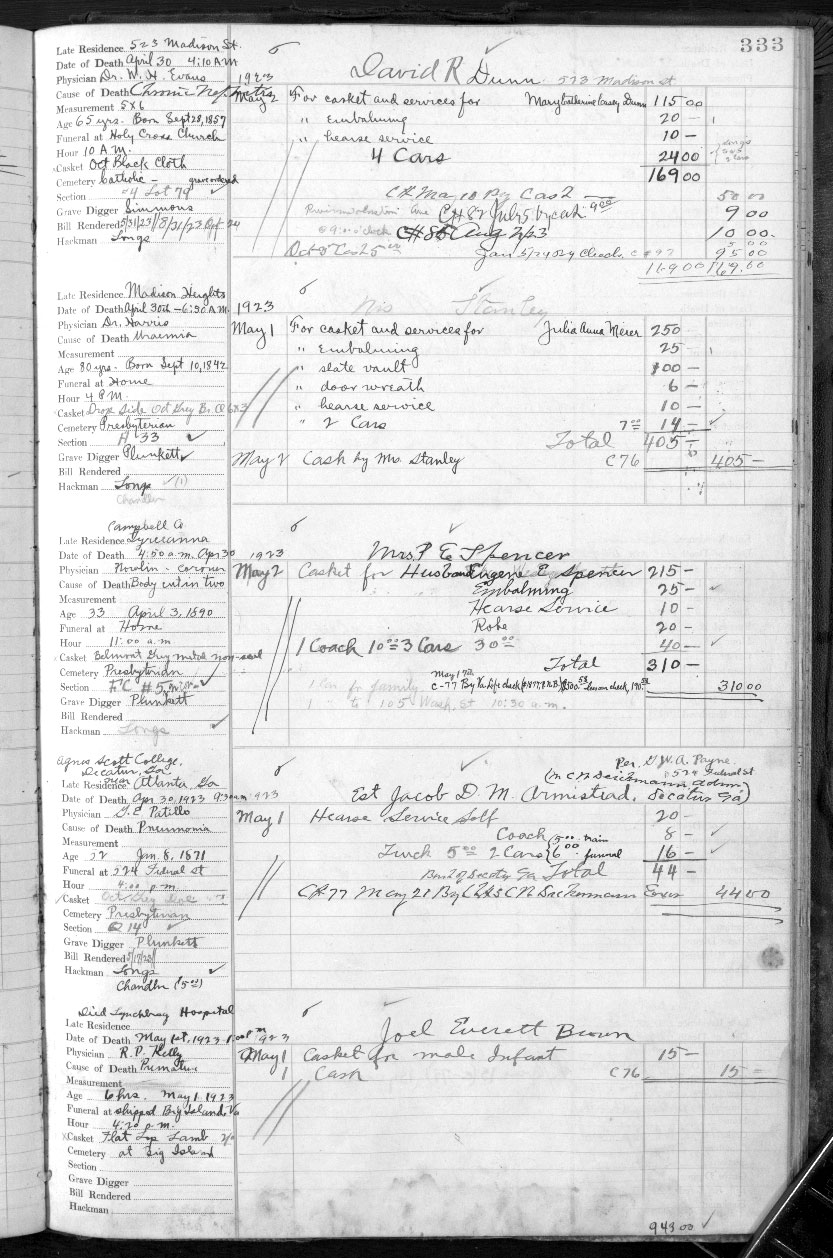 333
Late Residence 523 Madison St.
Date of Death April 30 4:10 AM
Physician Dr. W. H. Evans
Cause of Death Chronic
Measurement 5x6
Age 65 yrs. Born Sept 28, 1857
Funeral at Holy Cross Church
Hour 10 A.M.
Casket Oct Black Cloth
Cemetery Catholic - grave ordered
Section 04 Lot 79
Grave Digger Simmons
Bill Rendered 5/31/23
Hackman Longs
David R Dunn 523 Madison St
1923
May 2 For casket and services for Mary Catherine Casey Dunn 115 00
" Embalming 20 -
" hearse service 10 -
4 Cars 24 00
169 00
50 00
9 00
10 00
95 00
169 00 169.00
Late Residence Madison Heights
Date of Death April 30th - 6:30 A.M.
Physician Dr. Harris
Cause of Death Uraemia
Measurement
Age 80 yrs. Born Sept 10, 1842
Funeral at Home
Hour 4 P.M.
Casket Drop Side Oct Grey
Cemetery Presbyterian
Section A 33
Grave Digger Plunkett
Bill Rendered
Hackman Longs
Chandler
1923 Mrs Stanley
May 1 For casket and services for Julia Anna Meier 250
" Embalming 25 -
" slate vault 100 -
" door wreath 6 -
" hearse service 10 -
" 2 Cars 7 00 14 -
Total 405 -
May 2 Cash by Mrs Stanley C 76 405 -
Campbell Co
Late Residence
Date of Death 4:50 a.m. Apr 30
Physician - coroner
Cause of Death Body cut in two
Measurement
Age 33 April 3, 1890
Funeral at Home
Hour 11:00 a.m
Casket Belmont Grey metal non-seal
Cemetery Presbyterian
Section
Grave Digger Plunkett
Bill Rendered
Hackman Longs
1923 Mrs P E Spencer
May 2 Casket for Husband Eugene E Spencer 215 -
Embalming 25 -
Hearse Service 10 -
Robe 20 -
1 Coach 10 00 3 Cars 30 00 40 -
Total 310 -
May 17th
C-77 310 00
for family
to 105 Wash. St 10:30 a.m.
Agnes Scott College,
Decatur, Ga.
Late Residence near Atlanta, Ga
Date of Death Apr 30, 1923 9:30 a.m
Physician Patillo
Cause of Death Pneumonia
Measurement
Age 52 Jan. 8, 1871
Funeral at 524 Federal St
Hour 4:00 p.m.
Casket
Cemetery Presbyterian
Section Q 14
Grave Digger Plunkett
Bill Rendered 5/17/23
Hackman Longs
Chandler (5 00)
Per. G. W. A. Payne
524 Federal St
1923 Est Jacob D. M. Armistead, Decatur Ga)
May 1 Hearse Service Self 20 -
Coach 5.00 train 8 -
Truck 5 00 2 Cars 6 00 funeral 16 -
Bank of Decatur Ga Total 44 -
44 00
Died Lynchburg Hospital
Late Residence
Date of Death May 1st, 1923
Physician R. P. Kelly
Cause of Death Premature
Measurement
Age 6 hrs. May 1 1923
Funeral at shipped Big Island Va
Hour 4:20 p.m.
Casket Flat Top Lamb
Cemetery at Big Island
Section
Grave Digger
Bill Rendered
Hackman
1923 Joel Everett Brown
May 1 Casket for male Infant 15 -
1 Cash C 76 15 -
943 00